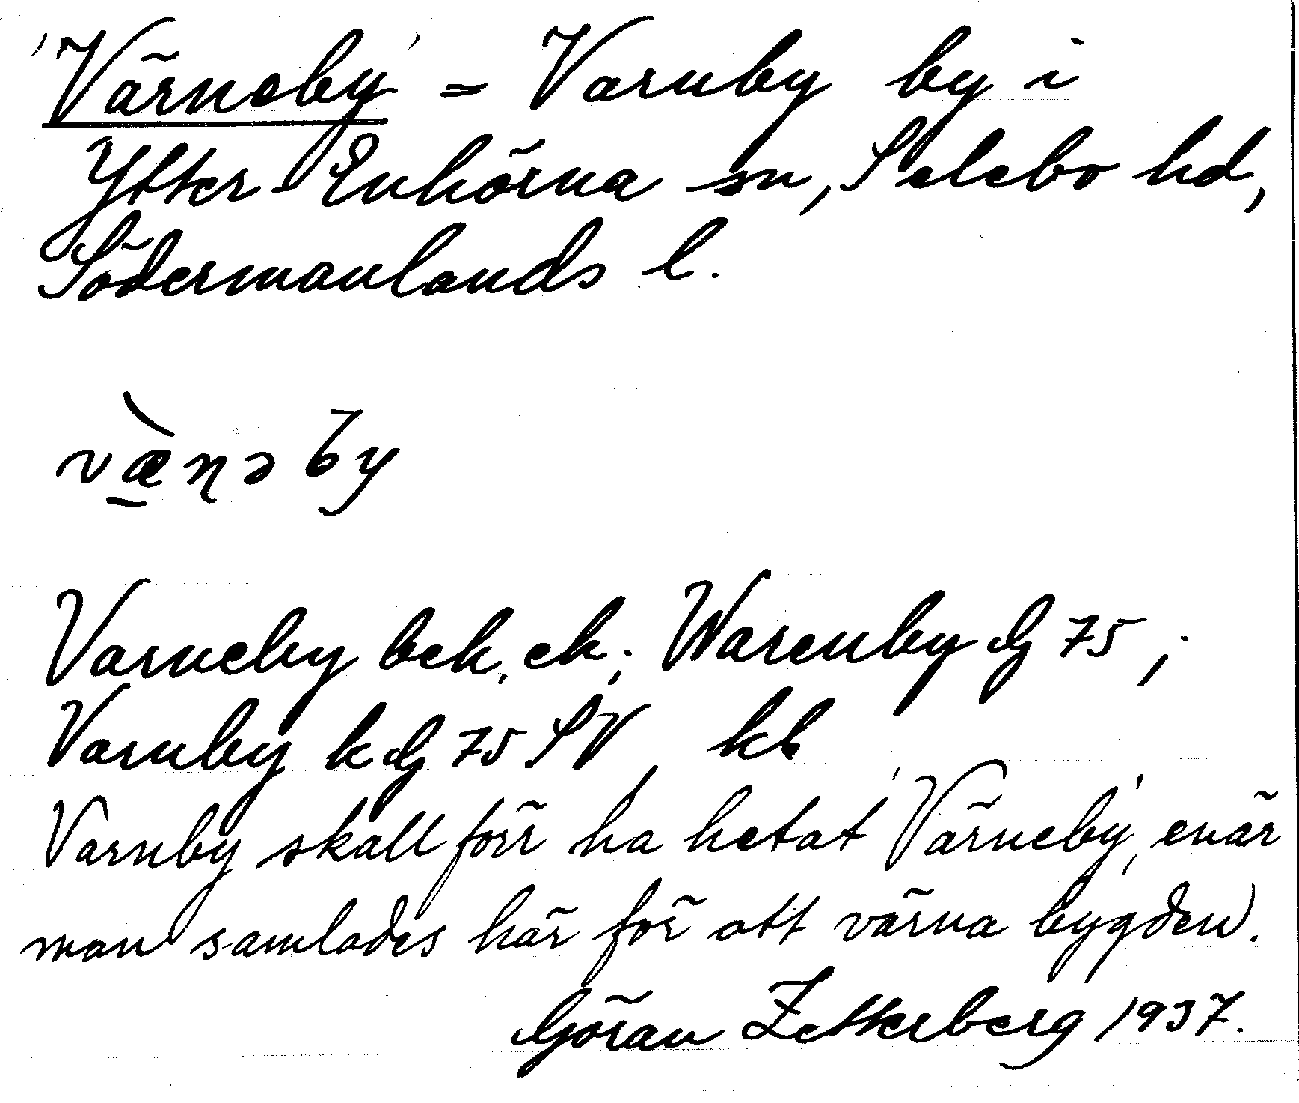 'Värneby' = Varnby by i
Ytter-Enhörna sn, Selebo hd,
Södermanlands l.
væ̀ɳəby
Varneby bek, ek; Warenby dg 75;
Varnby k dg 75 SV, kb
Varnby skall förr ha hetat 'Värneby', enär
man samlades här för att värna bygden.
Göran Zetterberg 1937.